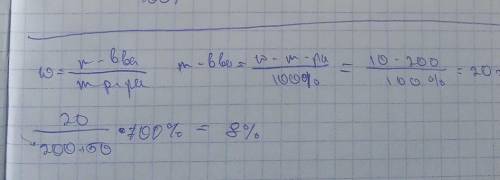 w = m-вва / m р-ра   m-вва = w-m-ра / 100% = 10-200 / 100% = 20
20 / 200+50 · 100% = 8%